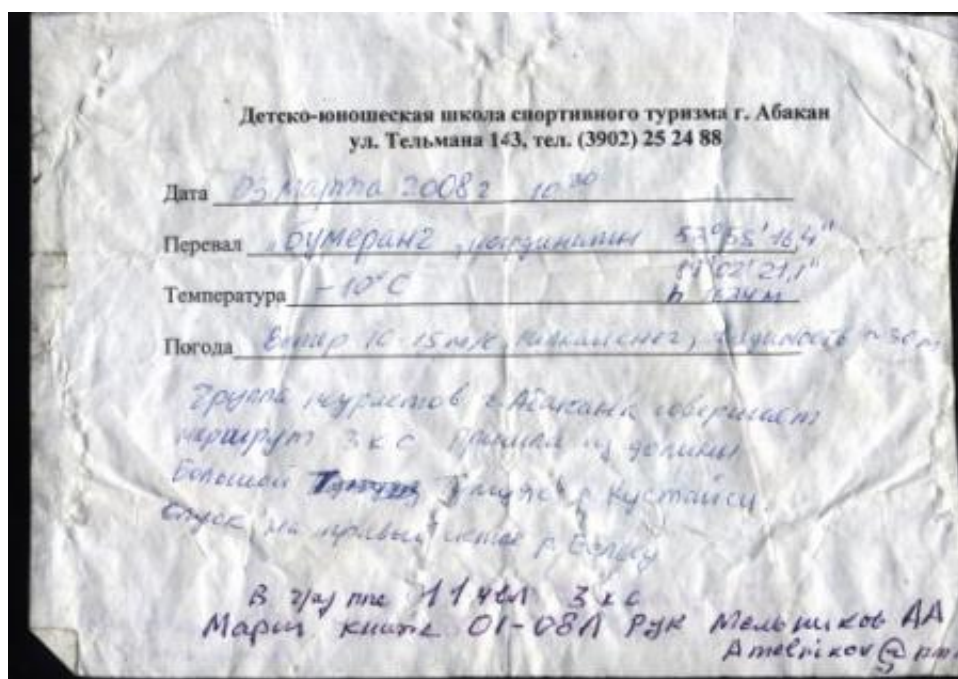 Детско-юношеская школа спортивного туризма г. Абакан
ул. Тельмана 143, тел. (3902) 25 24 88
Дата 03 марта 2008г 10 30
Перевал "Бумеранг", координаты 53° 55' 16,4"
02' 21,1"
Температура -10°C h
Погода Ветер 10-15 м/с, снег, видимость ~ 30 м
Группа туристов г. Абакана совершает
маршрут 3 к с Пришли из долины
Большой р. Кустайсу
Спуск на правый исток р.
В группе 11 чел 3 к с
Марш книжк 01-08Л Рук Мельников АА
Amelnikov@